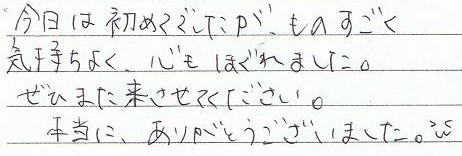 今日は初めてでしたが、ものすごく
気持ちよく、心もほぐれました。
ぜひまた来させてください。
本当に、ありがとうございました。